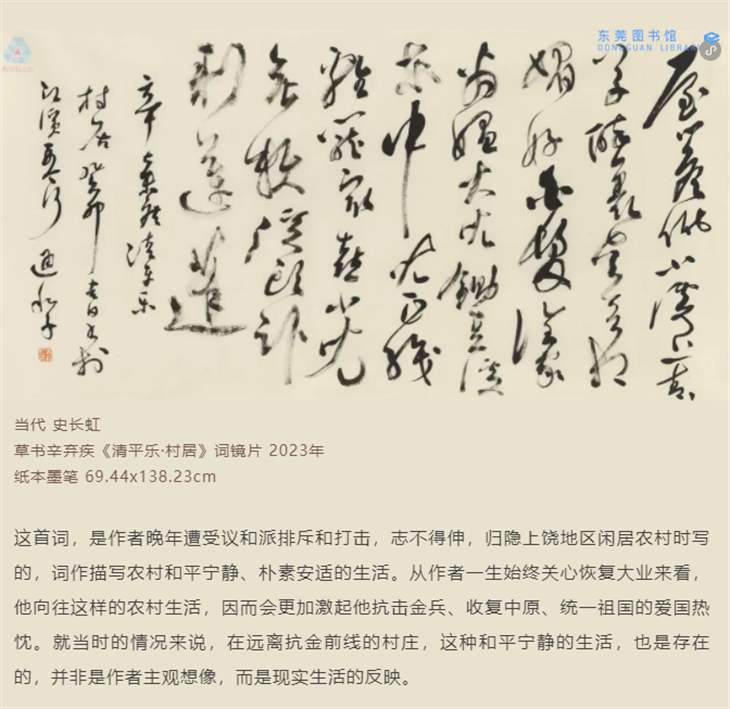 东莞图书馆
DONGGUAN LIBRARY
檐低小溪上青
草醉里吴音相
媚好白发谁家
翁媪大儿锄豆溪
东中儿正织
鸡笼最喜小儿
无赖溪头卧
剥莲蓬
辛弃疾清平乐
村居癸卯春日书于
当代 史长虹
草书辛弃疾《清平乐·村居》词镜片 2023年
纸本墨笔 69.44x138.23cm
这首词，是作者晚年遭受议和派排斥和打击，志不得伸，归隐上饶地区闲居农村时写
的，词作描写农村和平宁静、朴素安适的生活。从作者一生始终关心恢复大业来看，
他向往这样的农村生活，因而会更加激起他抗击金兵、收复中原、统一祖国的爱国热
忱。就当时的情况来说，在远离抗金前线的村庄，这种和平宁静的生活，也是存在
的，并非是作者主观想像，而是现实生活的反映。